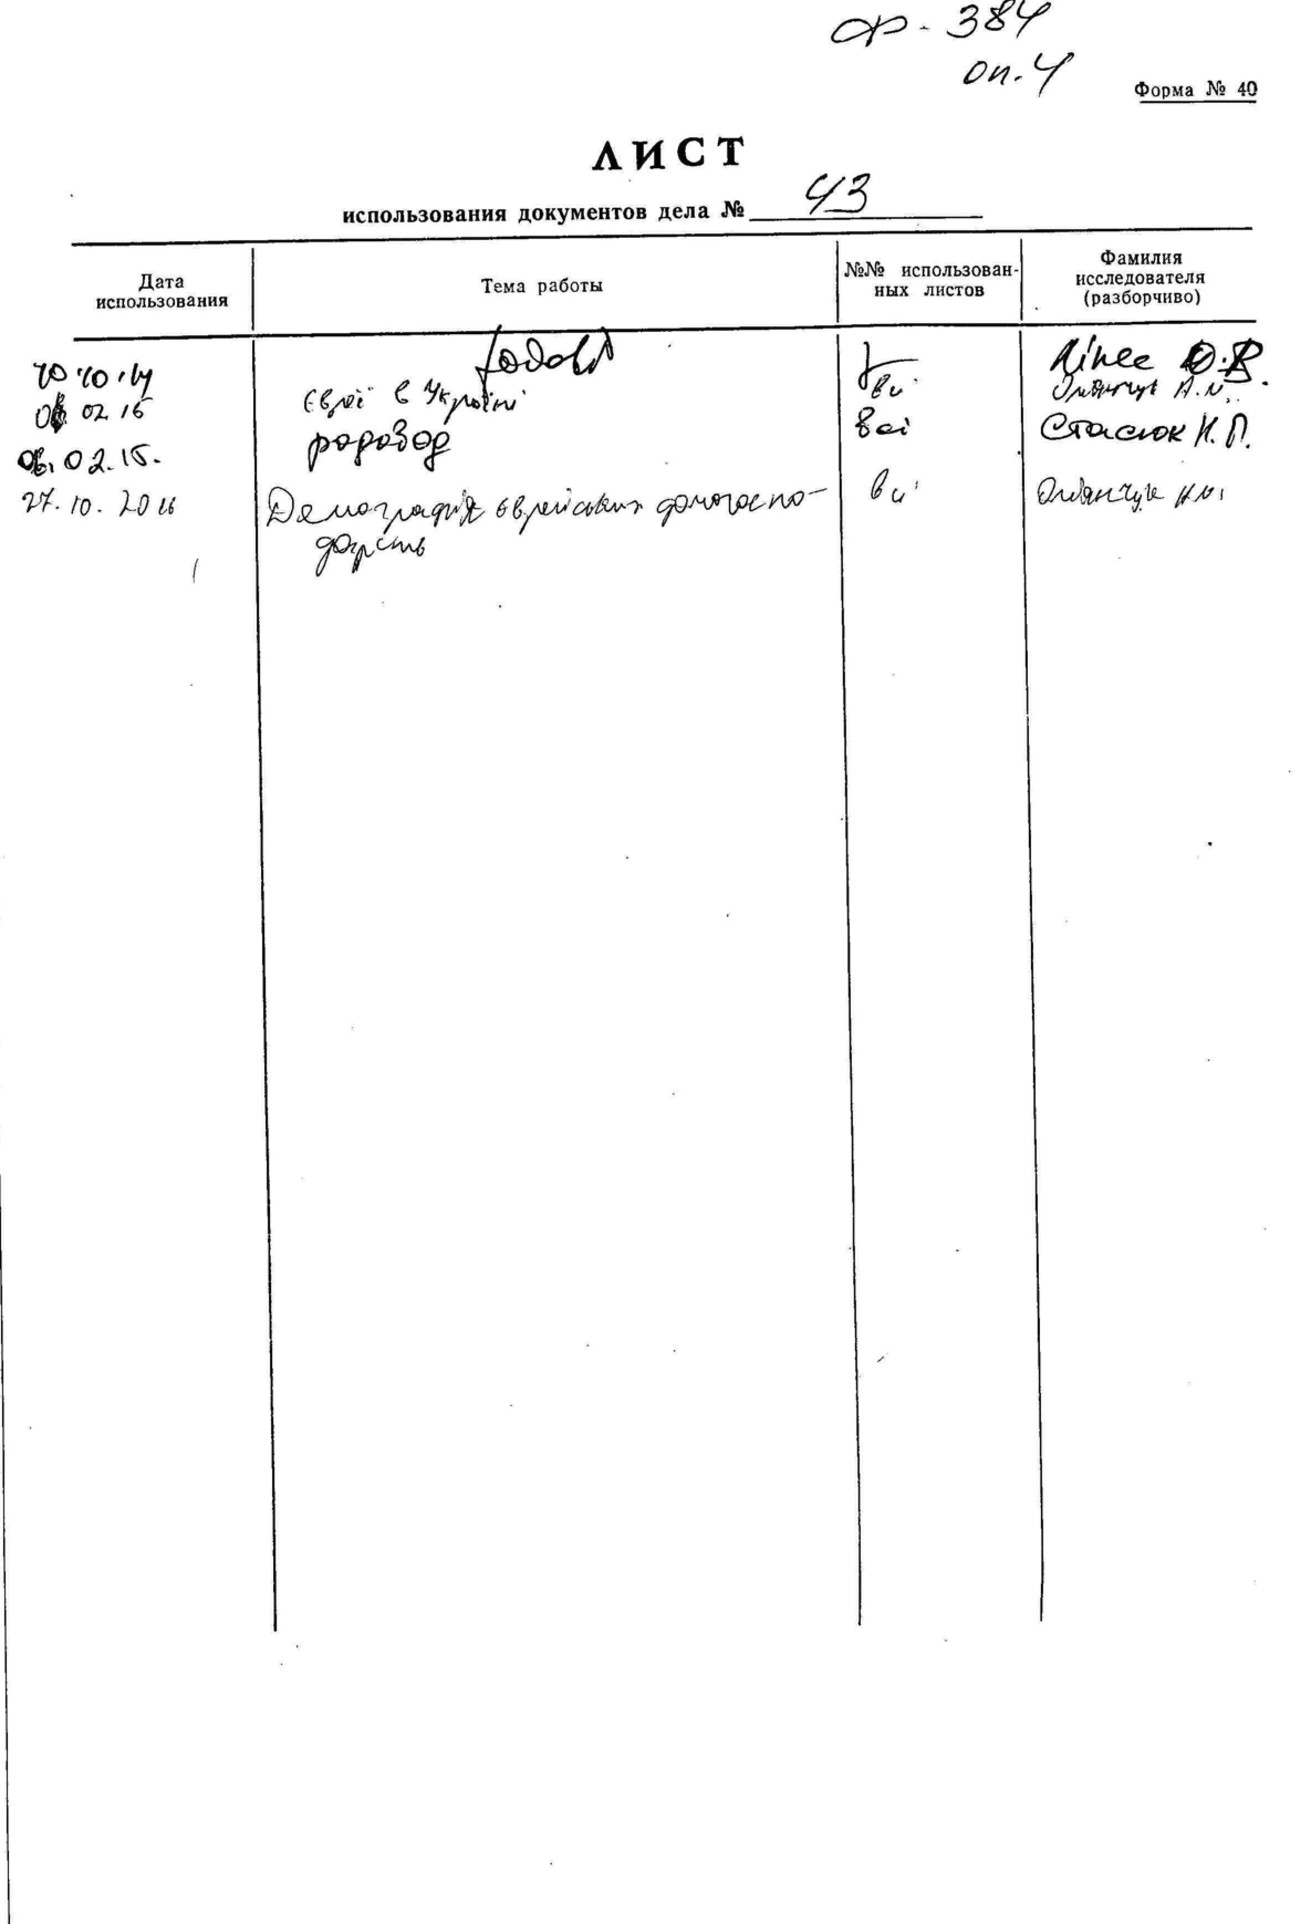 ф - 384
оп. 4
Форма № 40
ЛИСТ
использования документов дела № 43
Дата
использования
Тема работы
№№ использован-
ных листов
Фамилия
исследователя
(разборчиво)
10.10.14
Євреї в Україні
всі
02 15
родовод
всі
Стасюк Н. П.
06.02.15.
27.10.2016
Демографія єврейських домогоспо-
дарств
всі